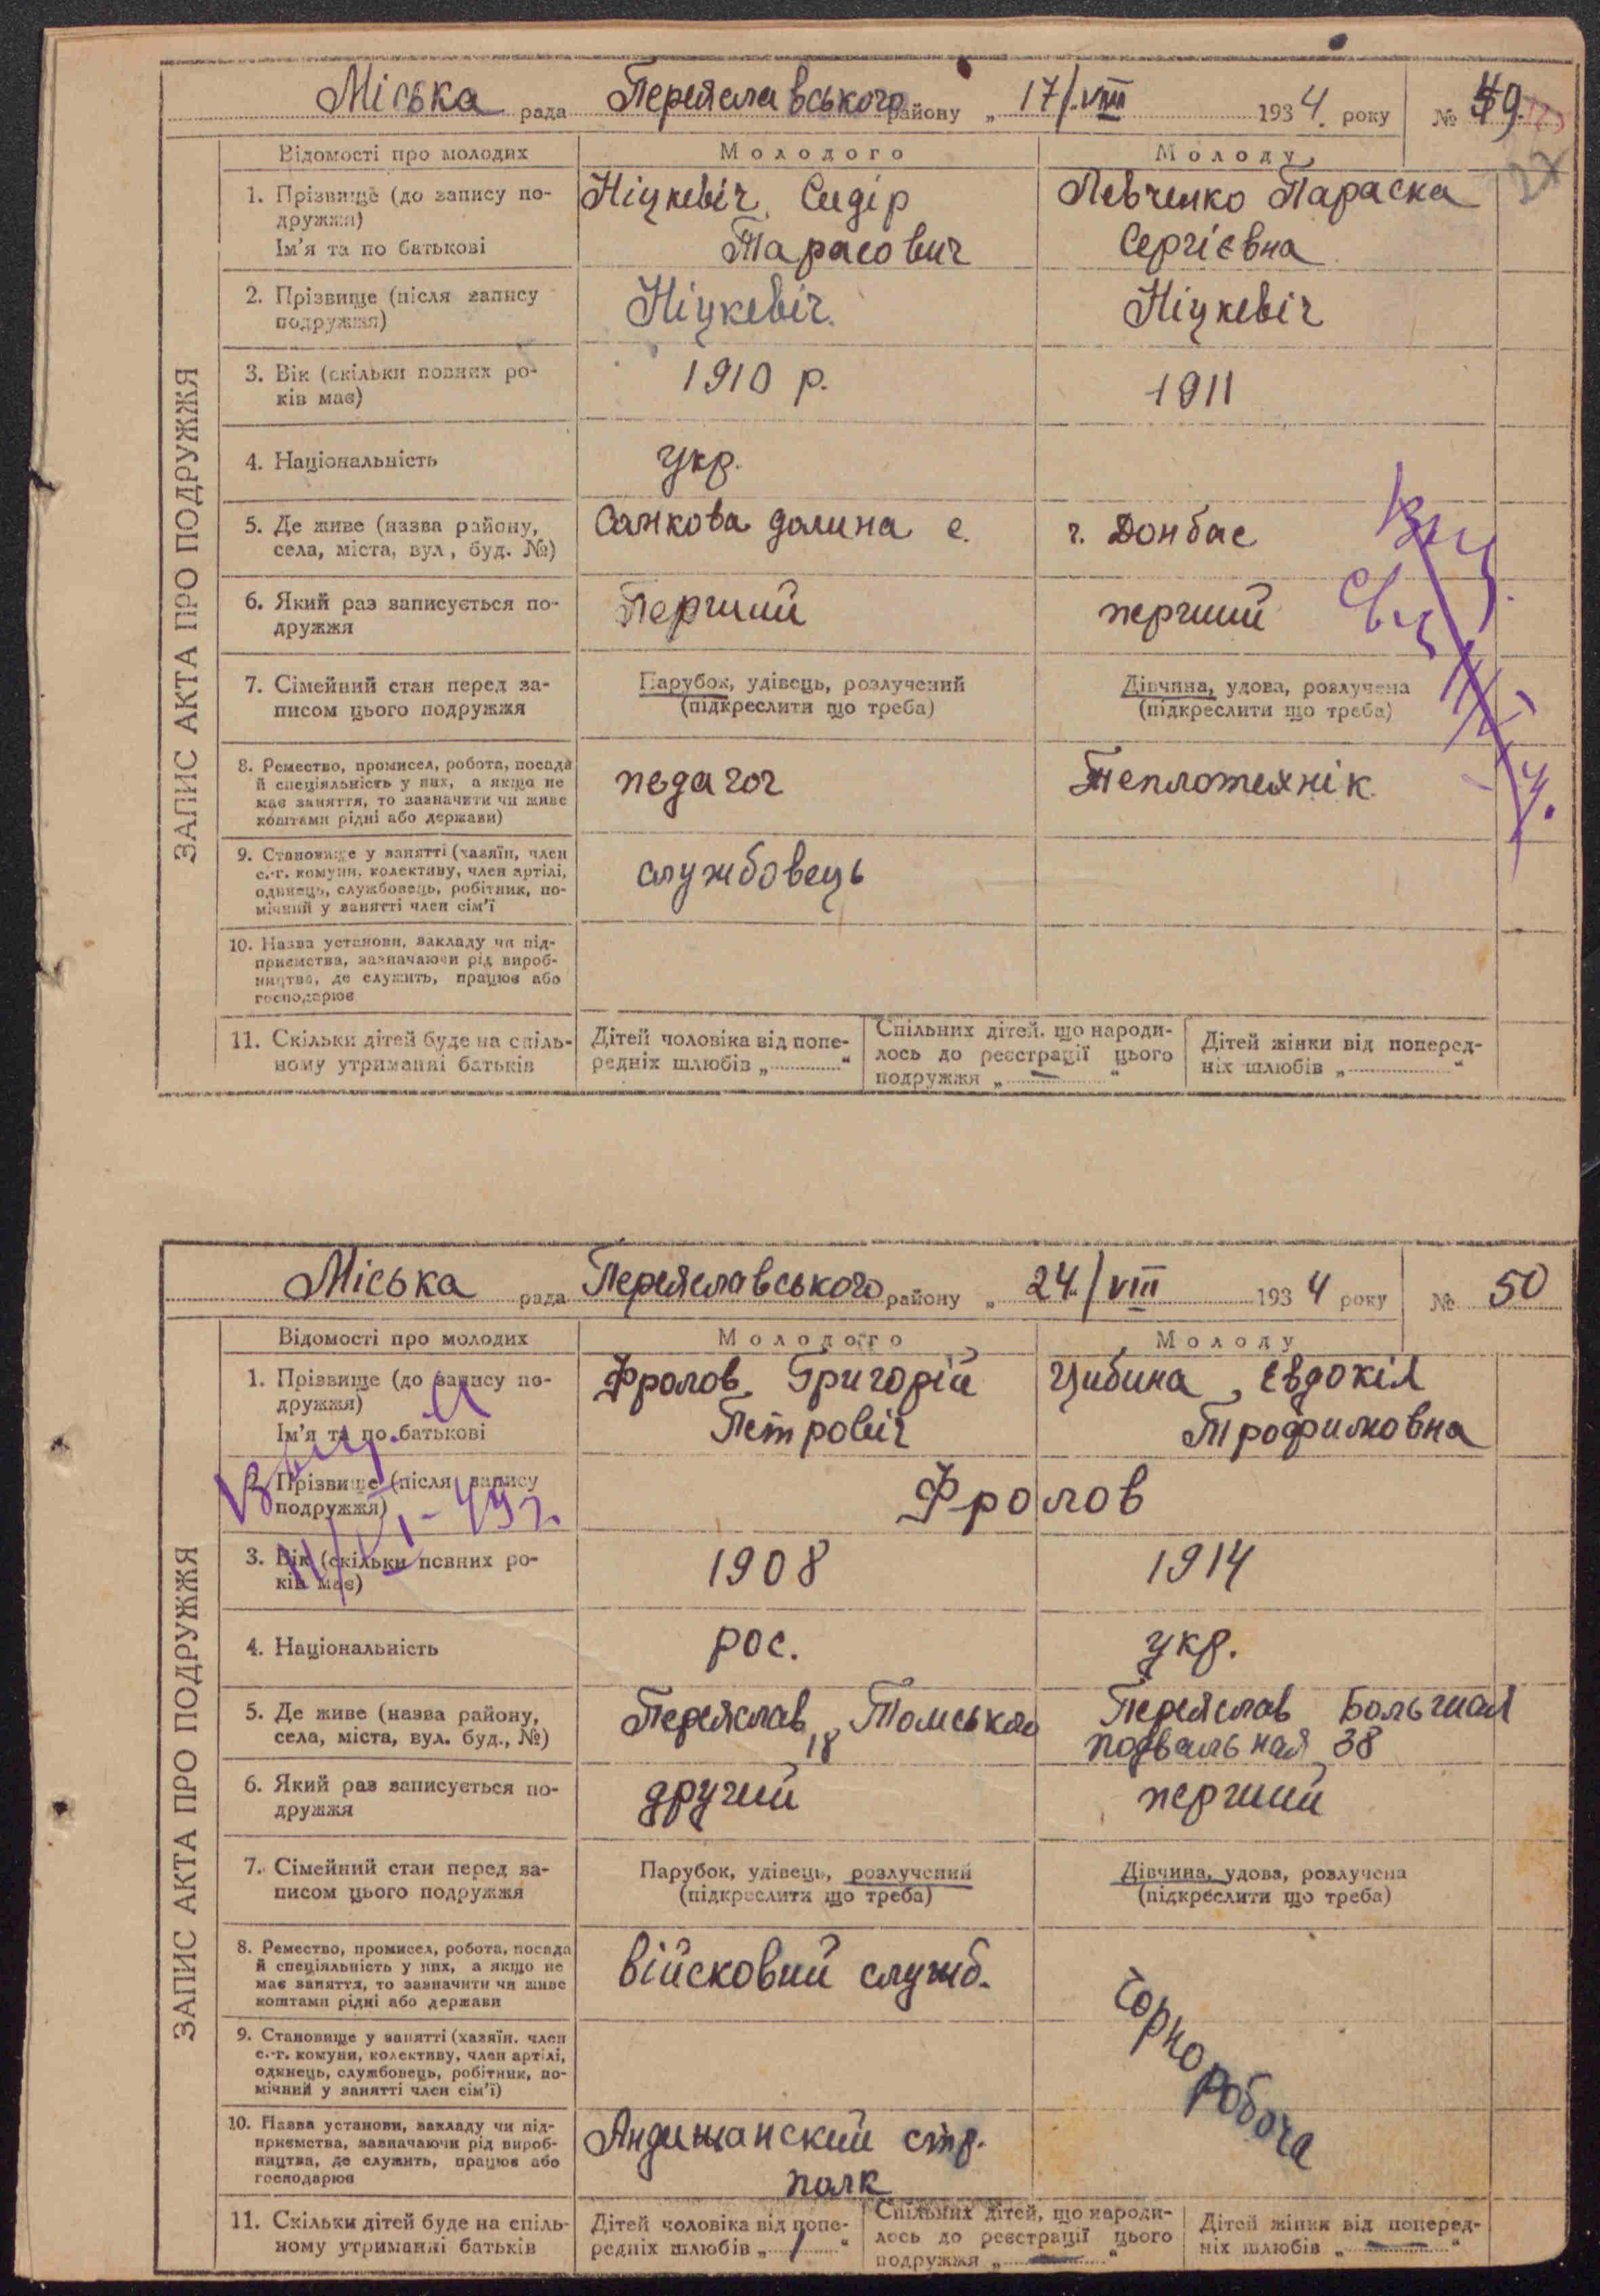 Міська рада Переяславського району „ 17/VIII 1934. року № 49.
27
Відомості про молодих Молодого Молоду
ЗАПИС АКТА ПРО ПОДРУЖЖЯ
1. Прізвище (до запису по- Ніцкевіч Сидір Левченко Параска
дружжя) Тарасович Сергієвна
Ім'я та по батькові
2. Прізвище (після запису Ніцкевіч. Ніцкевіч
подружжя)
3. Вік (скільки повних ро- 1910 р. 1911
ків має)
4. Національність укр.
5. Де живе (назва району, долина с. г. Донбас
села, міста, вул, буд. №)
6. Який раз записується по- Перший перший
дружжя
7. Сімейний стан перед за- Парубок, удівець, розлучений Дівчина, удова, розлучена
писом цього подружжя (підкреслити що треба) (підкреслити що треба)
8. Ремество, промисел, робота, посада педагог Теплотехнік
й спеціяльність у них, а якщо не
має заняття, то зазначити чи живе
коштами рідні або держави)
9. Становище у занятті (хазяїн, член службовець
с.-г. комуни, колективу, член артілі,
одинець, службовець, робітник, по-
мічний у занятті член сім'ї
10. Назва установи, закладу чи під-
приємства, зазначаючи рід вироб-
ництва, де служить, працює або
господарює
11. Скільки дітей буде на спіль- Дітей чоловіка від попе- Спільних дітей, що народи- Дітей жінки від поперед-
ному утриманні батьків редніх шлюбів „ “ лось до реєстрації цього ніх шлюбів „ “
подружжя „ — “
Міська рада Переяславського району „ 24./VIII 1934 року № 50
Відомості про молодих Молодого Молоду
ЗАПИС АКТА ПРО ПОДРУЖЖЯ
1. Прізвище (до запису по- Фролов Григорій Цибина, Евдокія
дружжя) Петровіч Трофимовна
Ім'я та по батькові
2. Прізвище (після запису Фролов
подружжя)
3. Вік (скільки повних ро- 1908 1914
ків має)
4. Національність рос. укр.
5. Де живе (назва району, Переяслав, Томського Переяслав Большая
села, міста, вул. буд., №) 18 подвальная 38
6. Який раз записується по- другий перший
дружжя
7. Сімейний стан перед за- Парубок, удівець, розлучений Дівчина, удова, розлучена
писом цього подружжя (підкреслити що треба) (підкреслити що треба)
8. Ремество, промисел, робота, посада військовий служб.
й спеціяльність у них, а якщо не
має заняття, то зазначити чи живе
коштами рідні або держави
чорноробоча
9. Становище у занятті (хазяїн, член
с.-г. комуни, колективу, член артілі,
одинець, службовець, робітник, по-
мічний у занятті член сім'ї)
10. Назва установи, закладу чи під- Андижанский стр.
приємства, зазначаючи рід вироб- полк
ництва, де служить, працює або
господарює
11. Скільки дітей буде на спіль- Дітей чоловіка від попе- Спільних дітей, що народи- Дітей жінки від поперед-
ному утриманні батьків редніх шлюбів „ 1 “ лось до реєстрації цього ніх шлюбів „ — “
подружжя „ — “